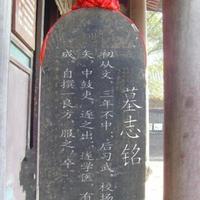 墓志铭
初从文，三年不中，后习武，校场
矢，中鼓吏，逐之出，遂学医，有
成，自撰一良方，服之，卒